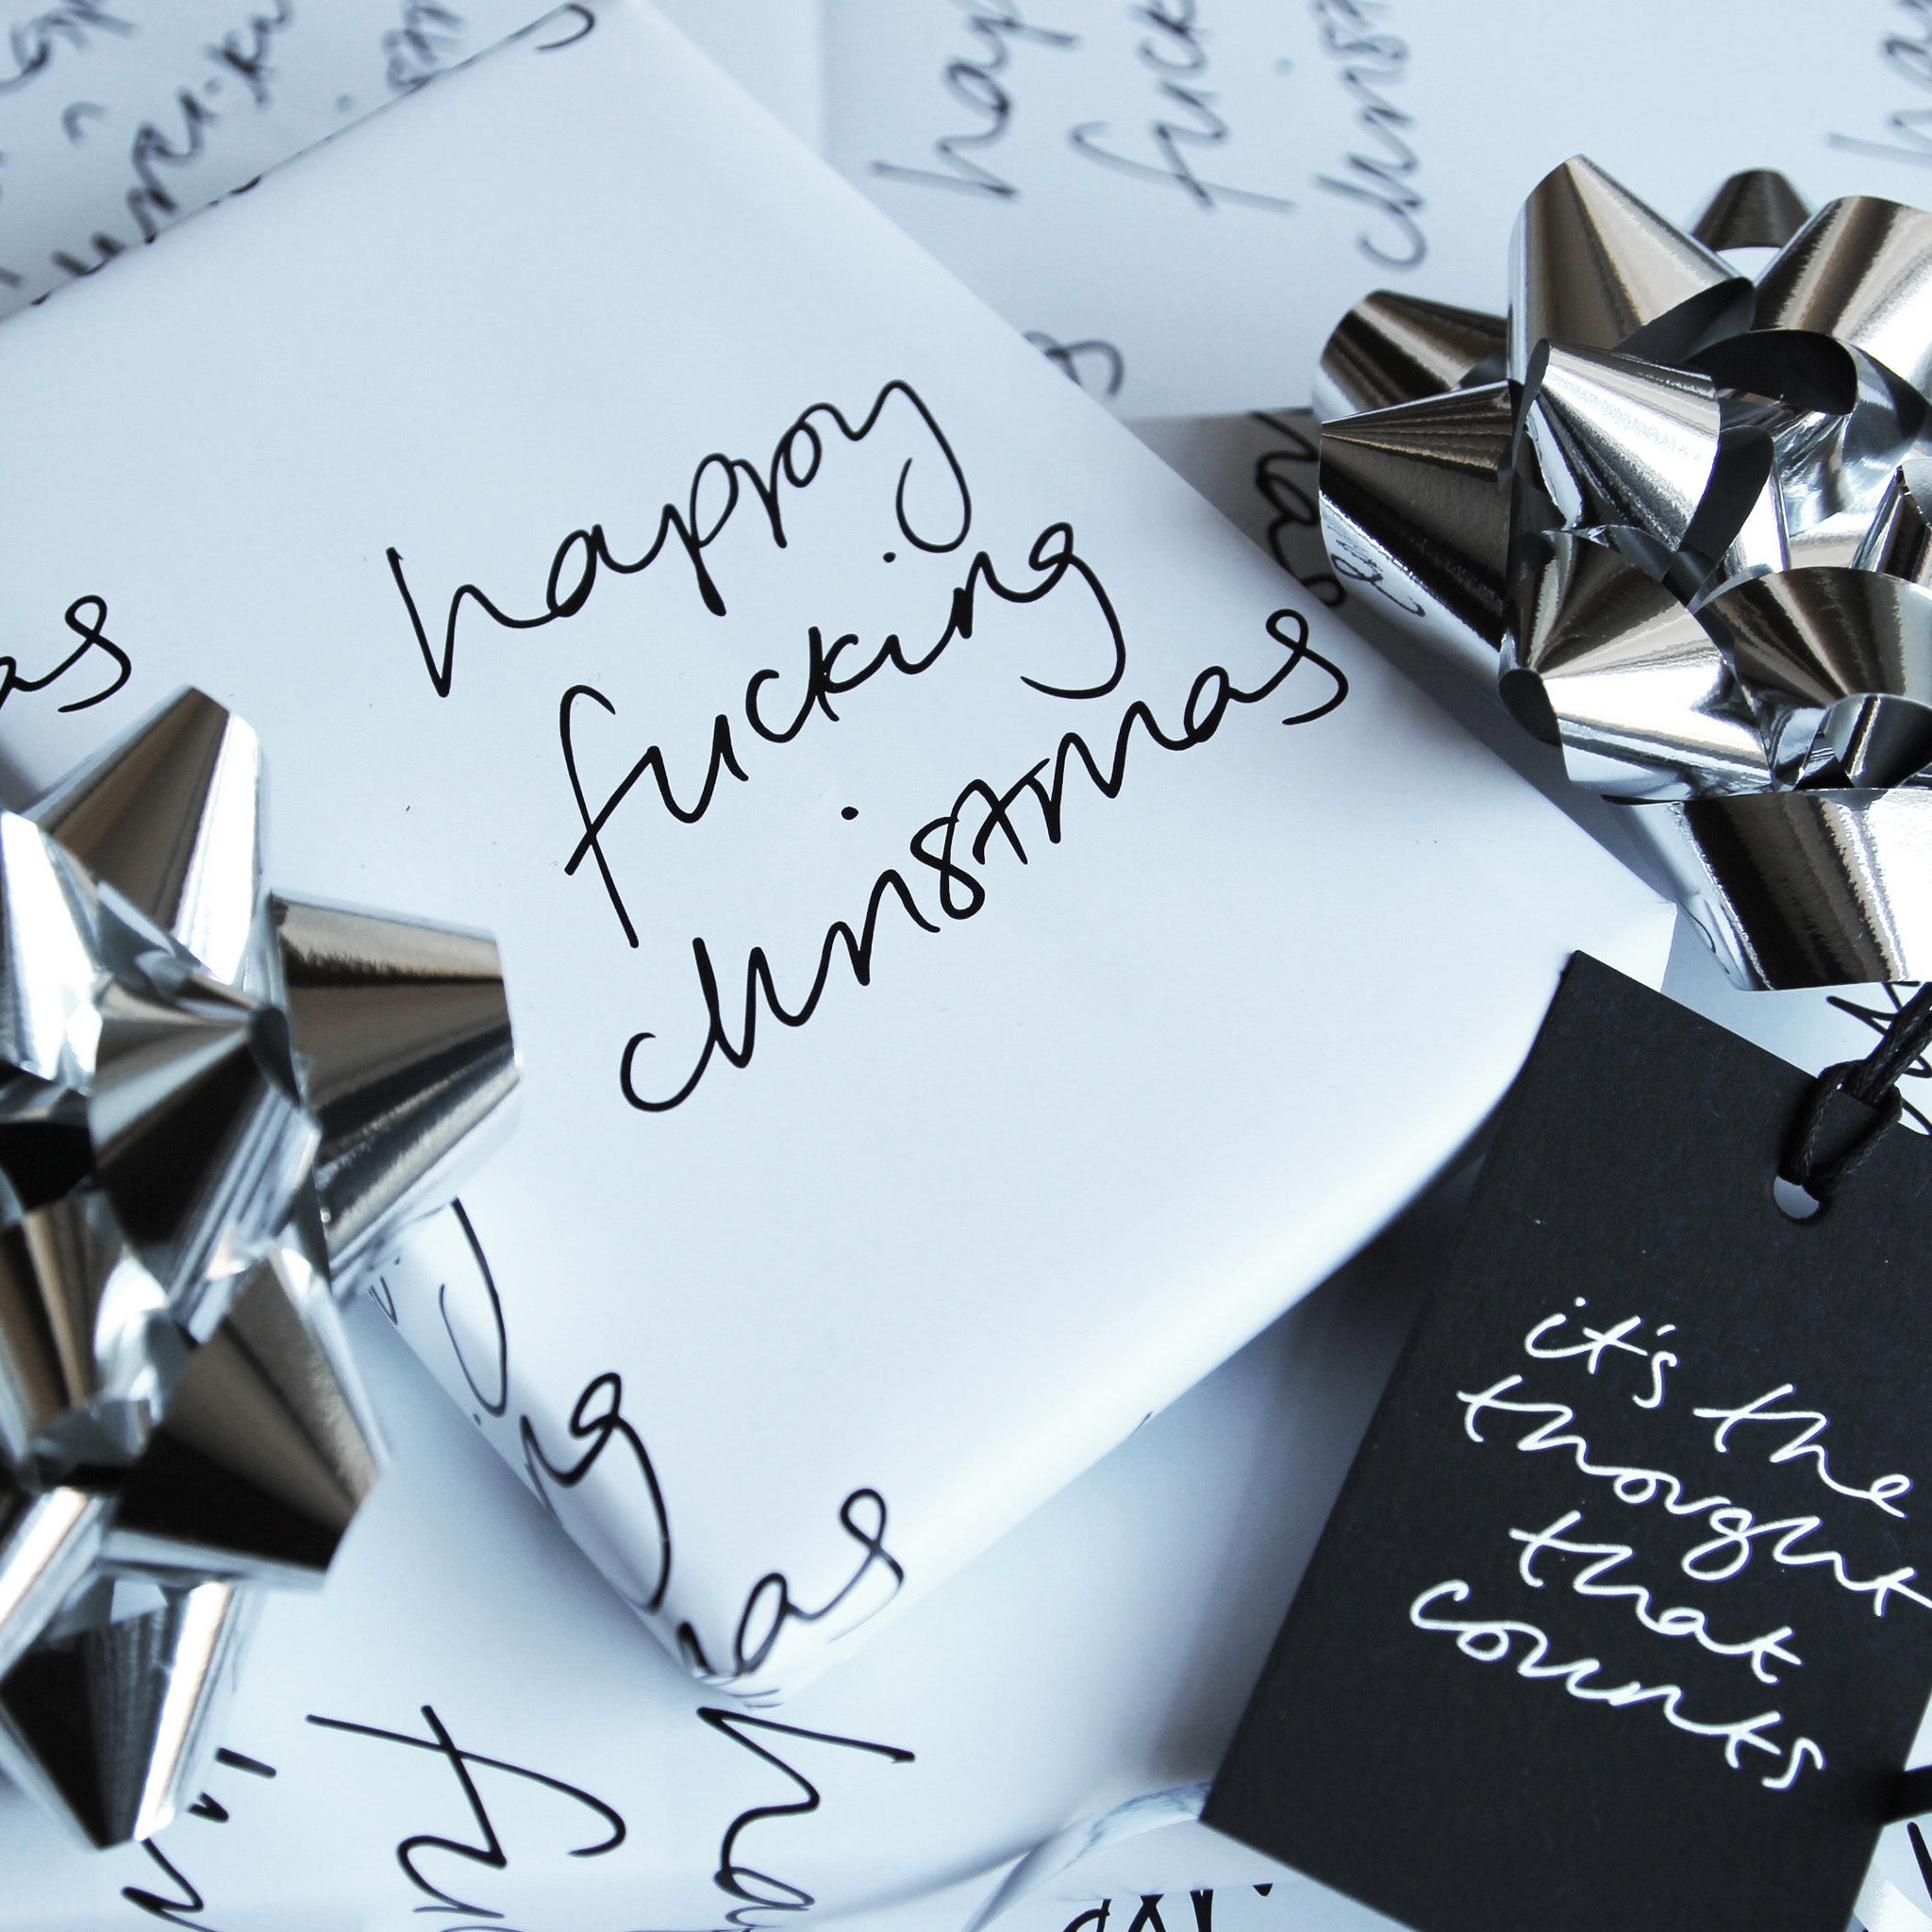 happy
fucking
christmas
it's the
thought
that
counts
as
hap
fuck
christ
as
ng
as